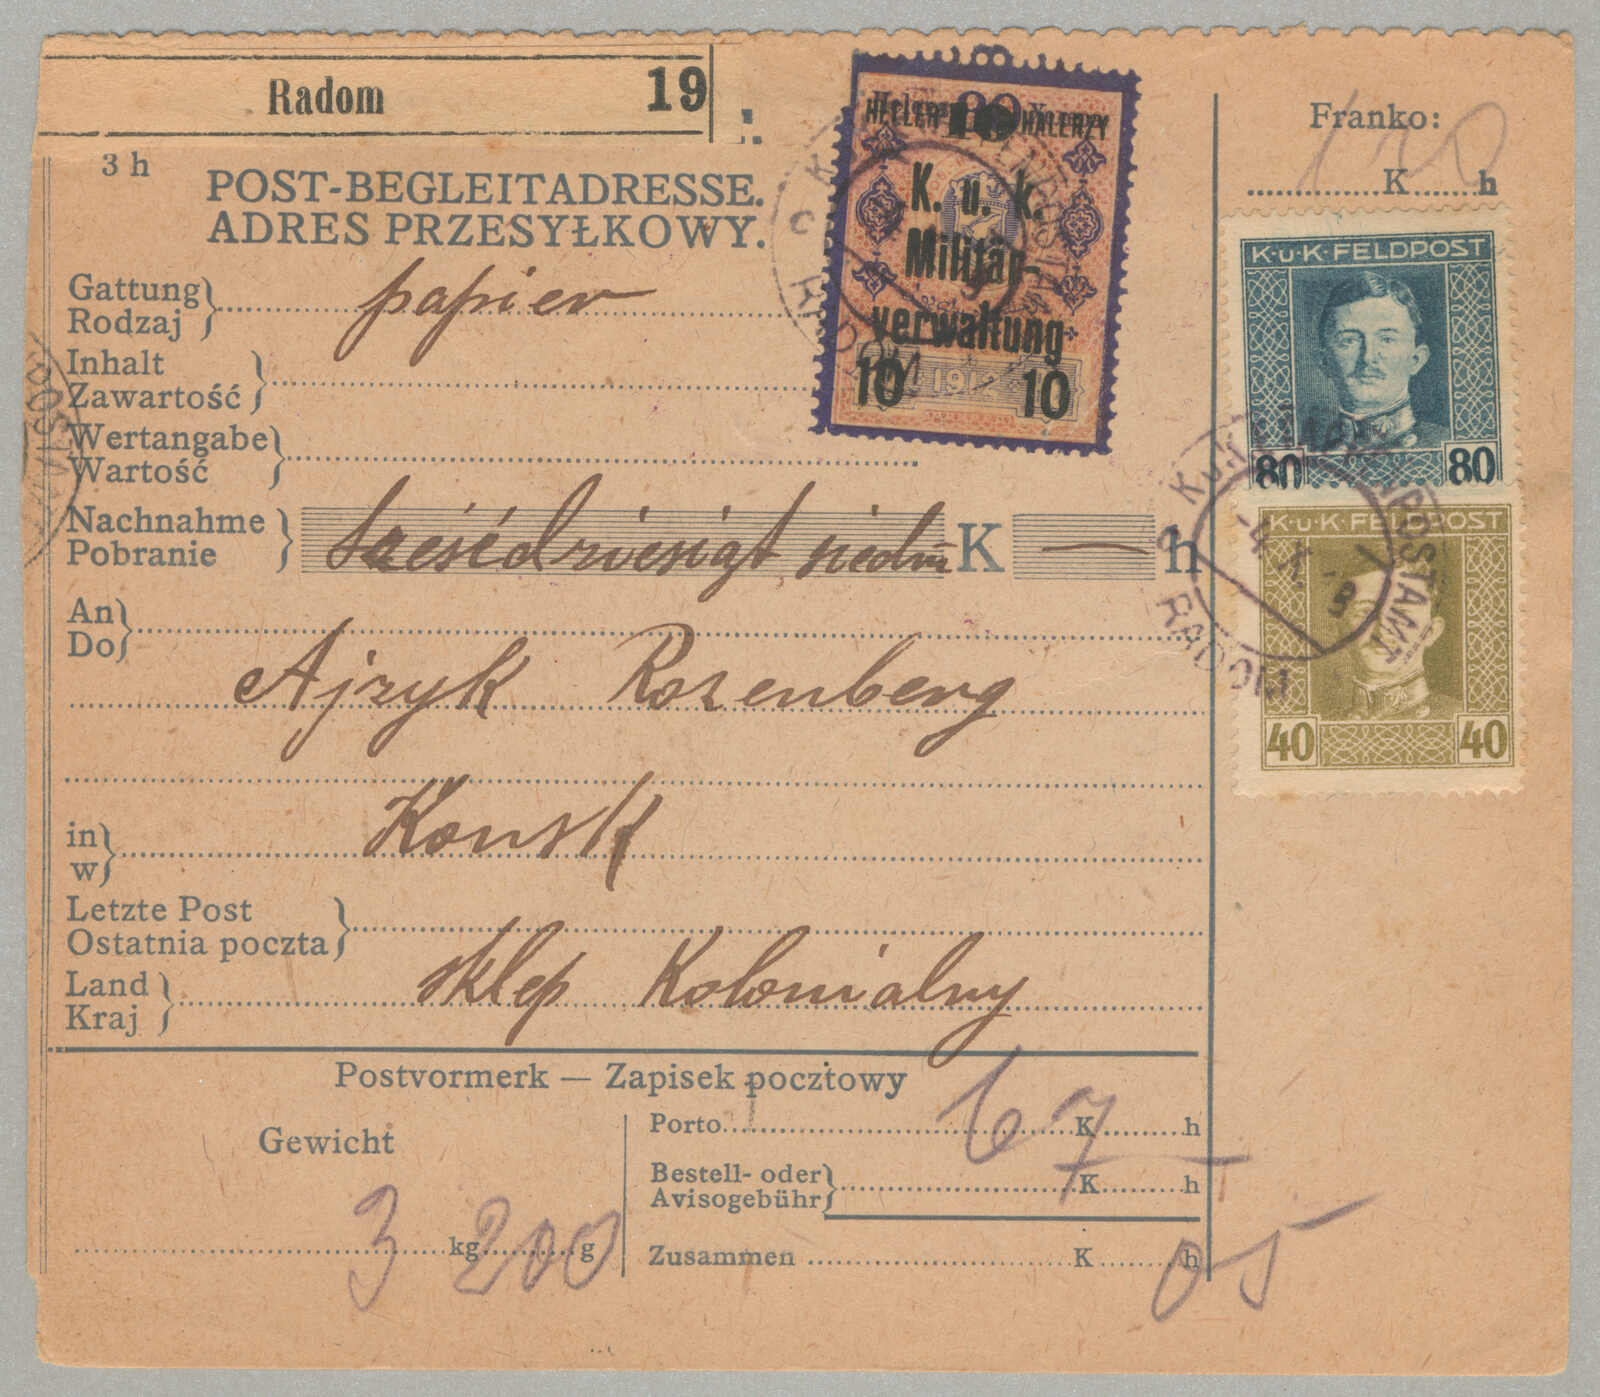 Radom 19
3 h
POST-BEGLEITADRESSE.
ADRES PRZESYŁKOWY.
Franko:
120
K h
Gattung
Rodzaj papier
Inhalt
Zawartość
Wertangabe
Wartość
Nachnahme
Pobranie sześćdziesiąt siedm K — h
An
Do
Ajzyk Rozenberg
in
w Konsk
Letzte Post
Ostatnia poczta
Land
Kraj sklep Kolonialny
Postvormerk — Zapisek pocztowy
Gewicht
3 kg 200 g
Porto K h
67
Bestell- oder
Avisogebühr K h
Zusammen K h
05
HELLER HALERZY
K. u. k.
Militär-
verwaltung
10 10
K·u·K·FELDPOST
80 80
K·u·K·FELDPOST
40 40
RADOM
RADOM